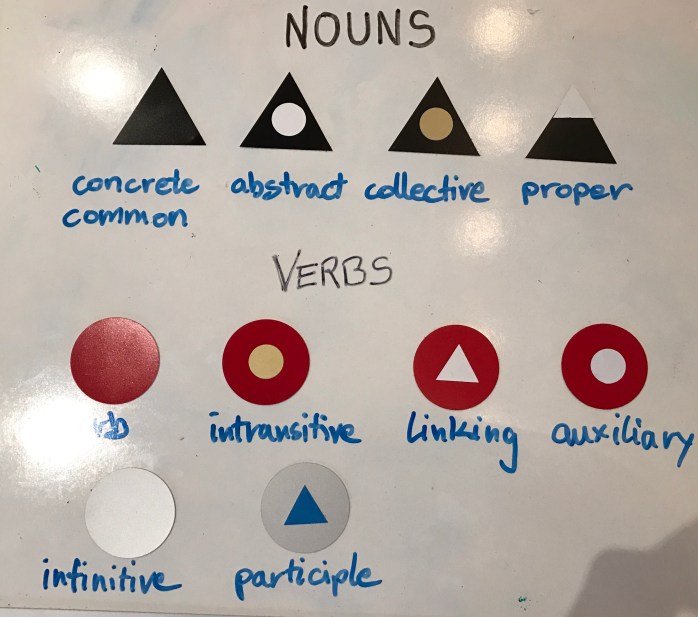 NOUNS
concrete abstract collective proper
common
VERBS
rb intransitive linking auxiliary
infinitive participle